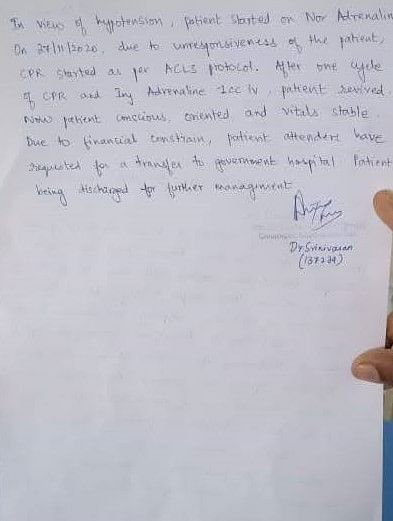 In view of hypotension, patient started on Nor Adrenalin
On 27/11/2020, due to unresponsiveness of the patient,
CPR started as per ACLS protocol. After one cycle
of CPR and Inj Adrenaline 1cc iv, patient revived.
Now patient conscious, oriented, and vitals stable.
Due to financial constrain, patient attenders have
requested for a transfer to government hospital. Patient
being discharged for further management.
Dr Srinivasan
(137234)